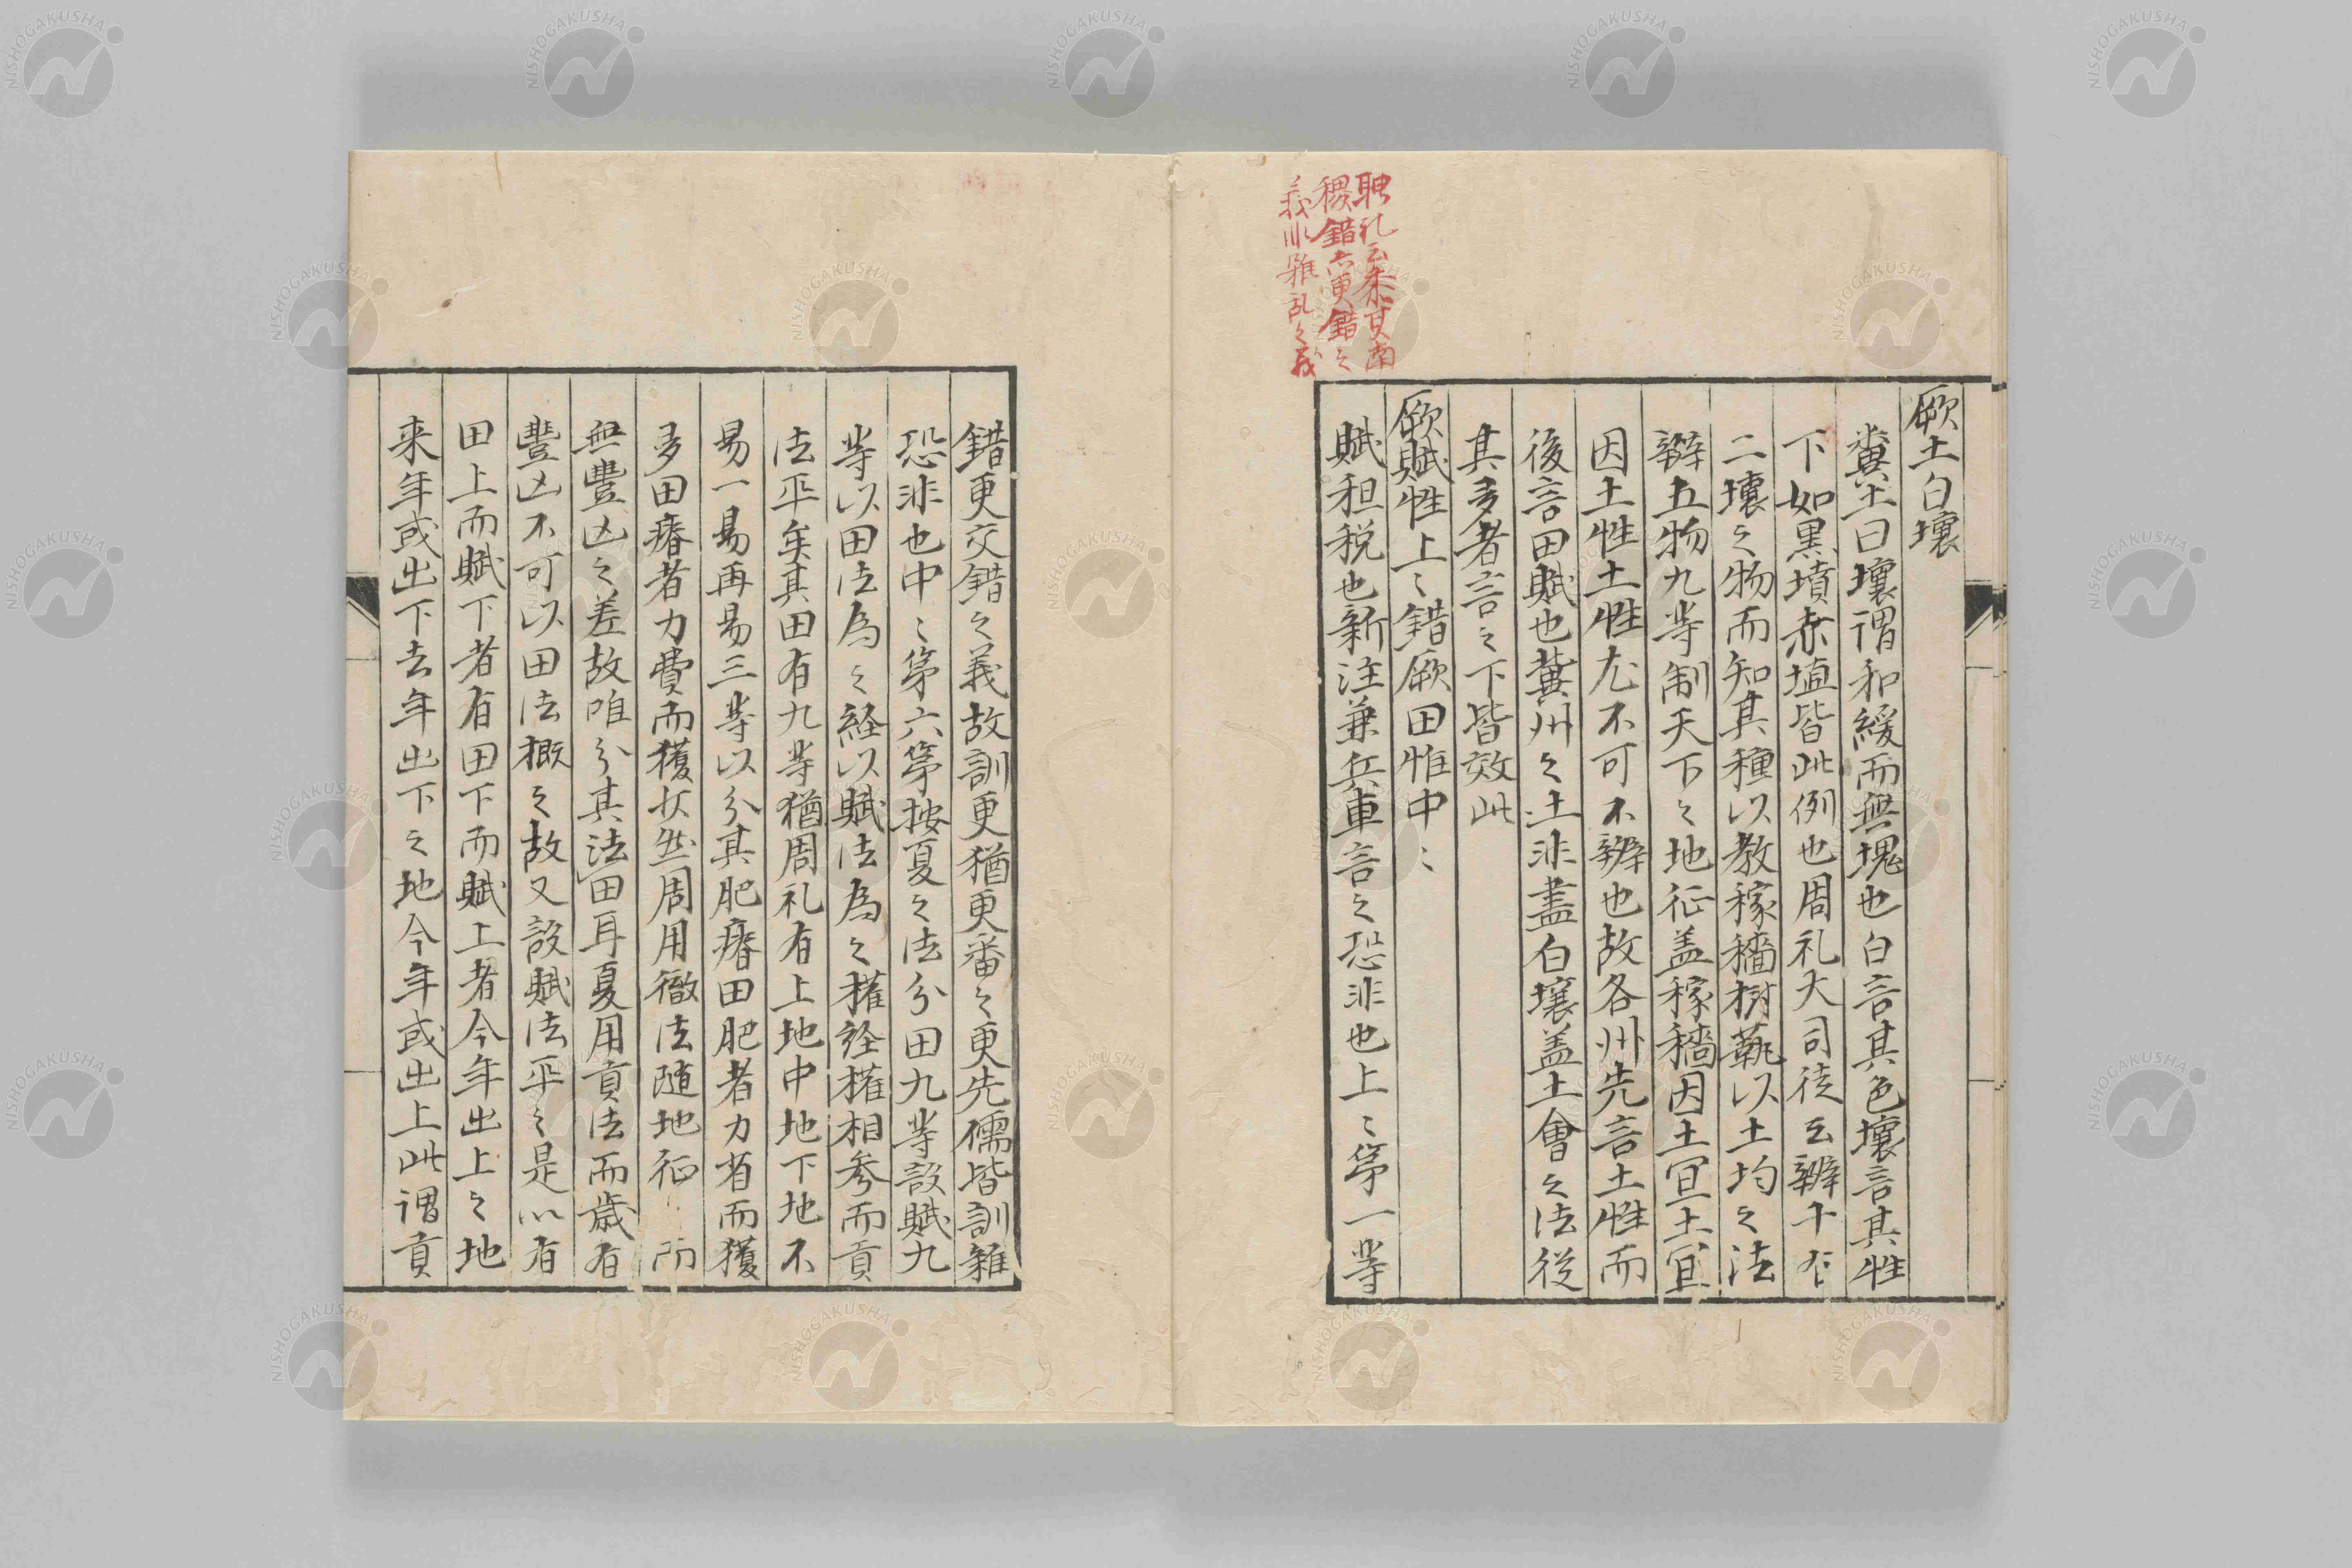 聘礼云朱夏南
稷錯六更錯之
義非雑乱之義
厥土白壤
糞土曰壤謂和緩而無塊也白言其色壤言其性
下如黒墳赤埴皆此例也周礼大司徒云辨十有
二壤之物而知其種以教稼穡樹蓺以土均之法
辨五物九等制天下之地征盖稼穡因土宜土宜
因土性土性尤不可不辨也故各州先言土性而
後言田賦也冀州之土非盡白壤盖土會之法従
其多者言之下皆效此
厥賦惟上〻錯厥田惟中〻
賦租税也新注兼兵車言之恐非也上〻第一等
錯更交錯之義故訓更猶更番之更先儒皆訓雑
恐非也中〻第六第按夏之法分田九等設賦九
等以田法為之経以賦法為之権経権相参而貢
法平矣其田有九等猶周礼有上地中地下地不
易一易再易三等以分其肥瘠田肥者力省而獲
多田瘠者力費而獲 然周用徹法随地征 而
無豐凶之差故唯分其法田耳夏用貢法而歳有
豐凶不可以田法概之故又設賦法平之是以有
田上而賦下者有田下而賦上者今年出上之地
来年或出下去年出下之地今年或出上此謂貢